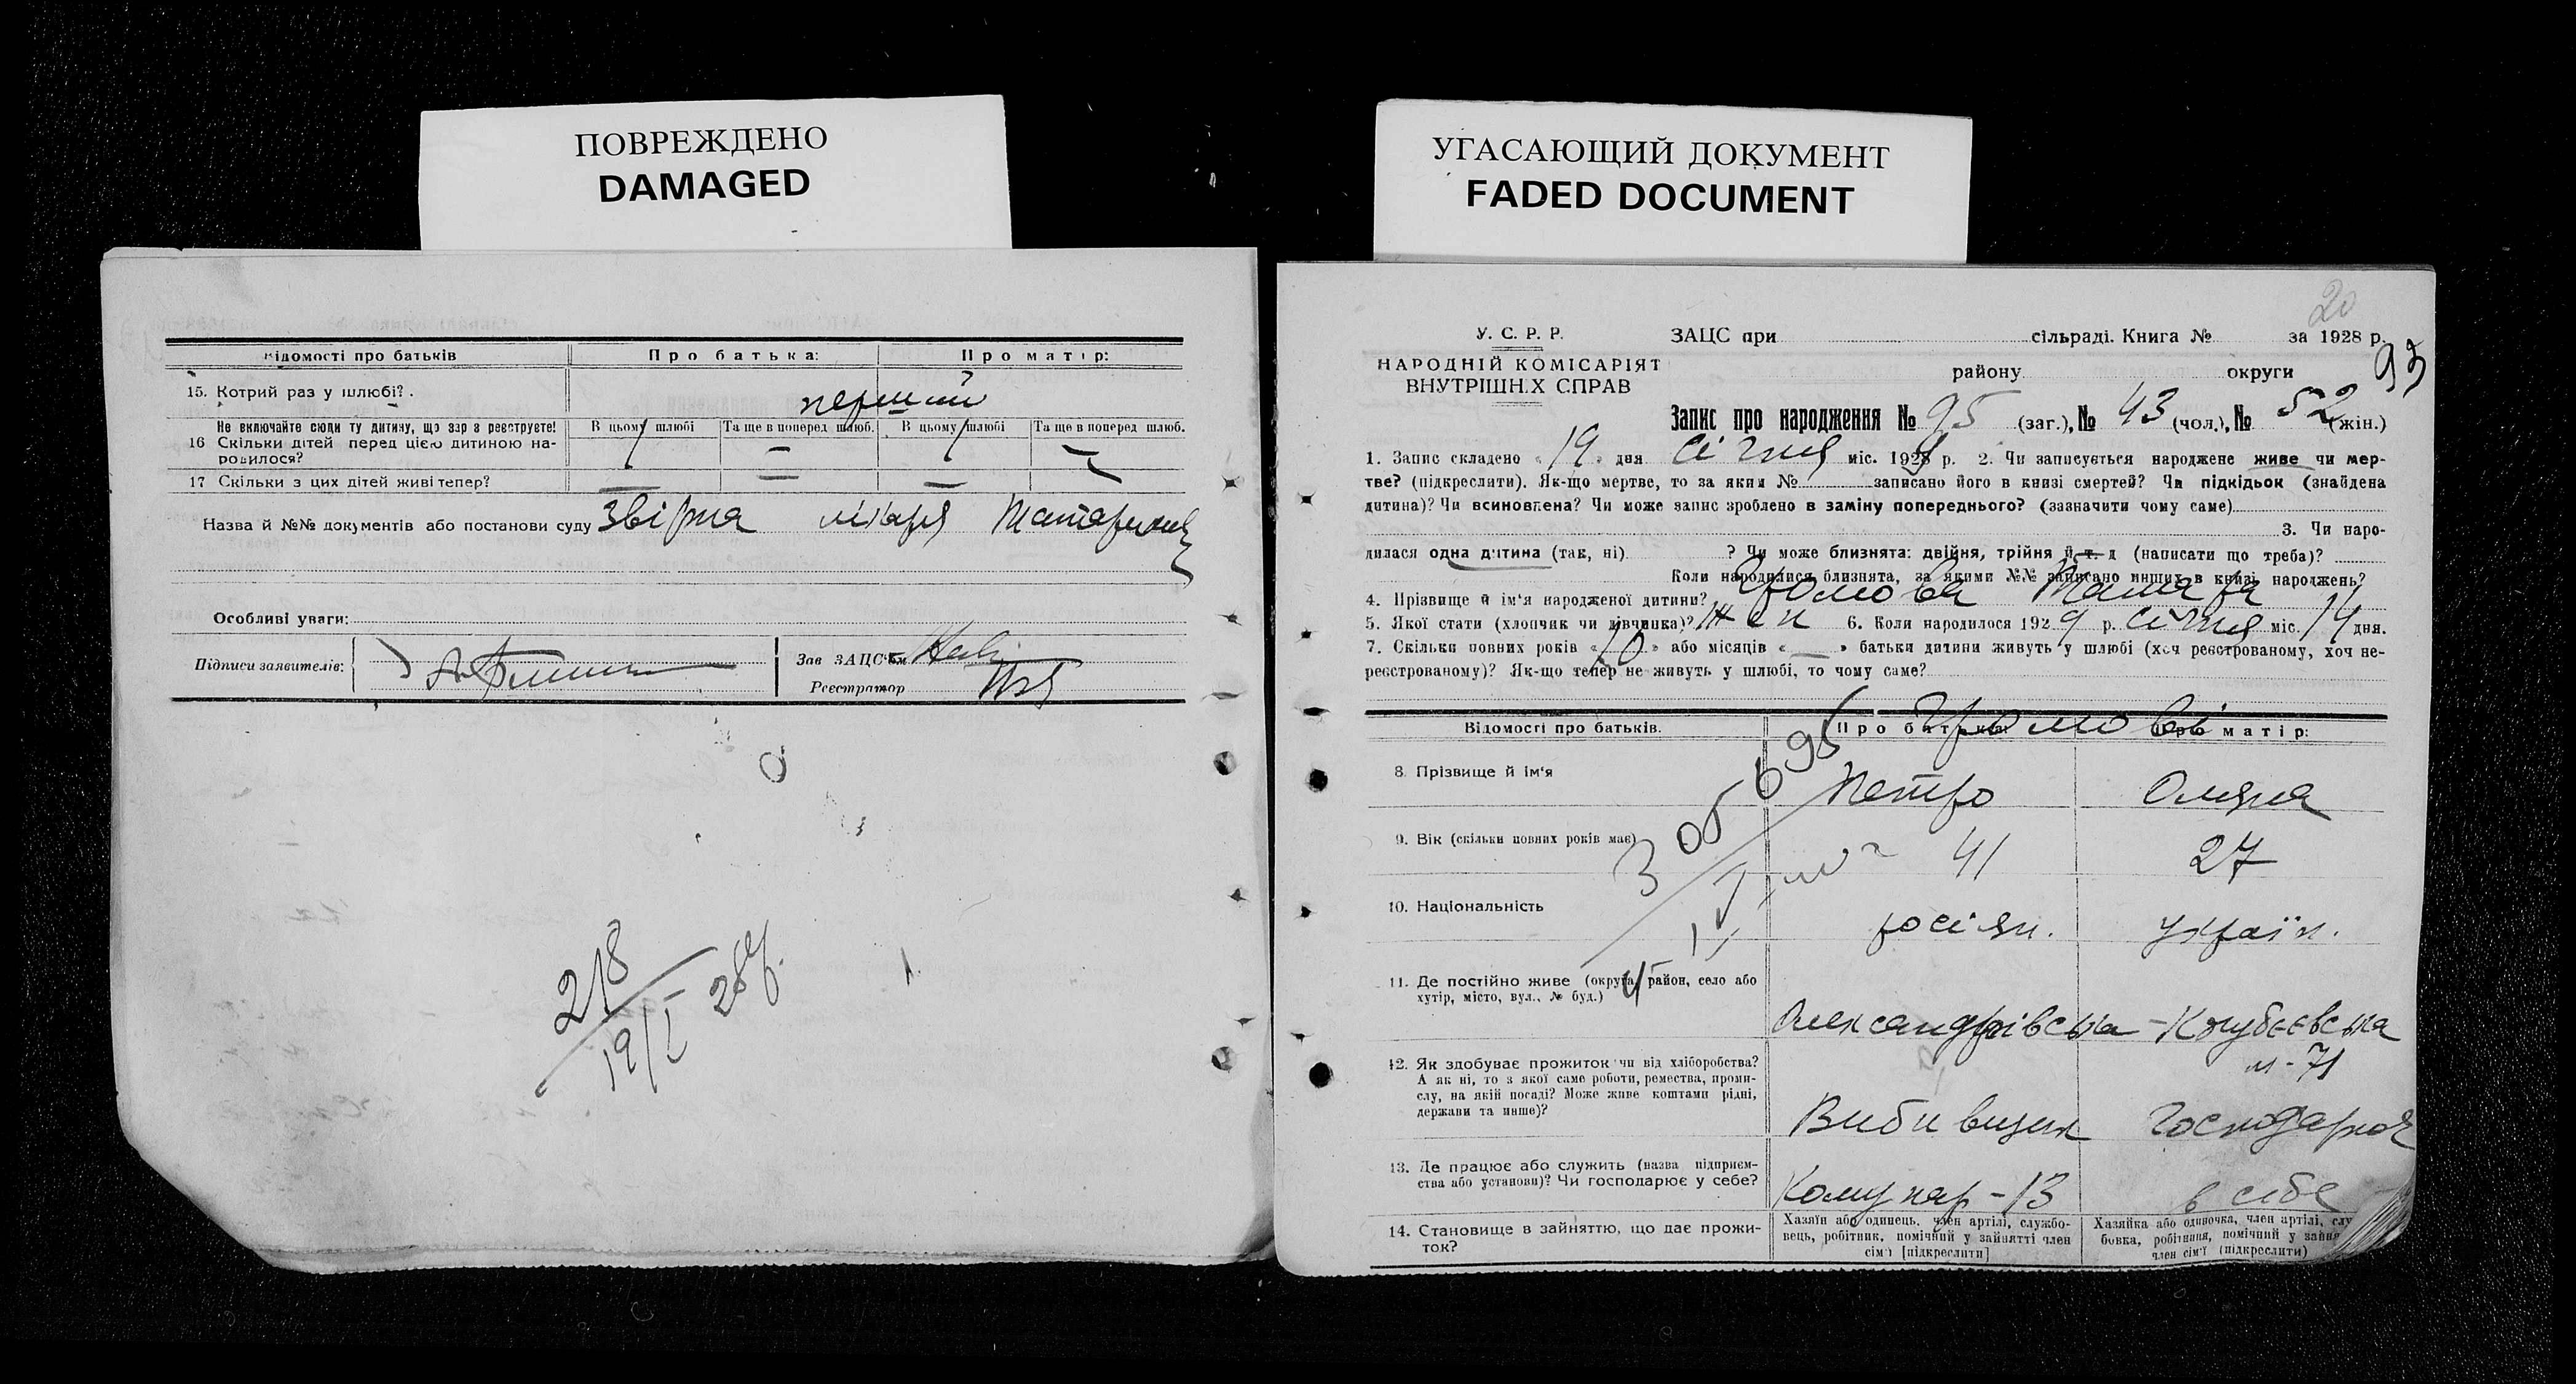 ПОВРЕЖДЕНО
DAMAGED
УГАСАЮЩИЙ ДОКУМЕНТ
FADED DOCUMENT
відомості про батьків
Про батька:
Про матір:
15. Котрий раз у шлюбі?.
перший
Не включайте сюди ту дитину, що зар з реєструєте!
16 Скільки дітей перед цією дитиною на-
родилося?
В цьому шлюбі
Та ще в поперед шлюб.
В цьому шлюбі
Та ще в поперед шлюб.
1 — 1 —
17 Скільки з цих дітей живі тепер?
— —
Назва й №№ документів або постанови суду Звірна лікаря
Особливі уваги:
Підписи заявителів:
Зав ЗАЦС'ом
Реєстратор
218
19/I 28 р.
20
93
У. С. Р. Р.
НАРОДНІЙ КОМІСАРІЯТ
ВНУТРІШН.Х СПРАВ
ЗАЦС при сільраді. Книга № за 1928 р.
району округи
Запис про народження № 95 (заг.), № 43 (чол.), № 52 (жін.)
1. Запис складено « 19 » дня січня міс. 1929 р. 2. Чи записується народжене живе чи мер-
тве? (підкреслити). Як-що мертве, то за яким № записано його в книзі смертей? Чи підкідьок (знайдена
дитина)? Чи всиновлена? Чи може запис зроблено в заміну попереднього? (зазначити чому саме)
3. Чи наро-
дилася одна дитина (так, ні) ? Чи може близнята: двійня, трійня й т. д (написати що треба)?
Коли народилися близнята, за якими №№ записано инших в книзі народжень?
4. Прізвище й ім'я народженої дитини? Громова Тамара
5. Якої стати (хлопчик чи дівчинка)? Жен 6. Коли народилося 1929 р. січня міс. 14 дня.
7. Скільки повних років « 10 » або місяців « — » батьки дитини живуть у шлюбі (хоч реєстрованому, хоч не-
реєстрованому)? Як-що тепер не живуть у шлюбі, то чому саме?
Відомості про батьків.
Про батька:
Про матір:
Громові
8. Прізвище й ім'я
Петро
Олена
9. Вік (скільки повних років має)
41
27
10. Національність
росіян.
україн.
11. Де постійно живе (округа, район, село або
хутір, місто, вул., № буд.)
Олександрівська - Кочубеєвська
71
12. Як здобуває прожиток чи від хліборобства?
А як ні, то з якої саме роботи, ремества, проми-
слу, на якій посаді? Може живе коштами рідні,
держави та инше)?
Вибивщик
Господарка
13. Де працює або служить (назва підприєм-
ства або установи)? Чи господарює у себе?
Комунар - 13
в себе
14. Становище в зайняттю, що дає прожи-
ток?
Хазяїн або одинець, член артілі, службо-
вець, робітник, помічний у зайнятті член
сім'ї [підкреслити]
Хазяйка або одиночка, член артілі, слу
бовка, робітниця, помічний у зайня
член сім'ї (підкреслити)